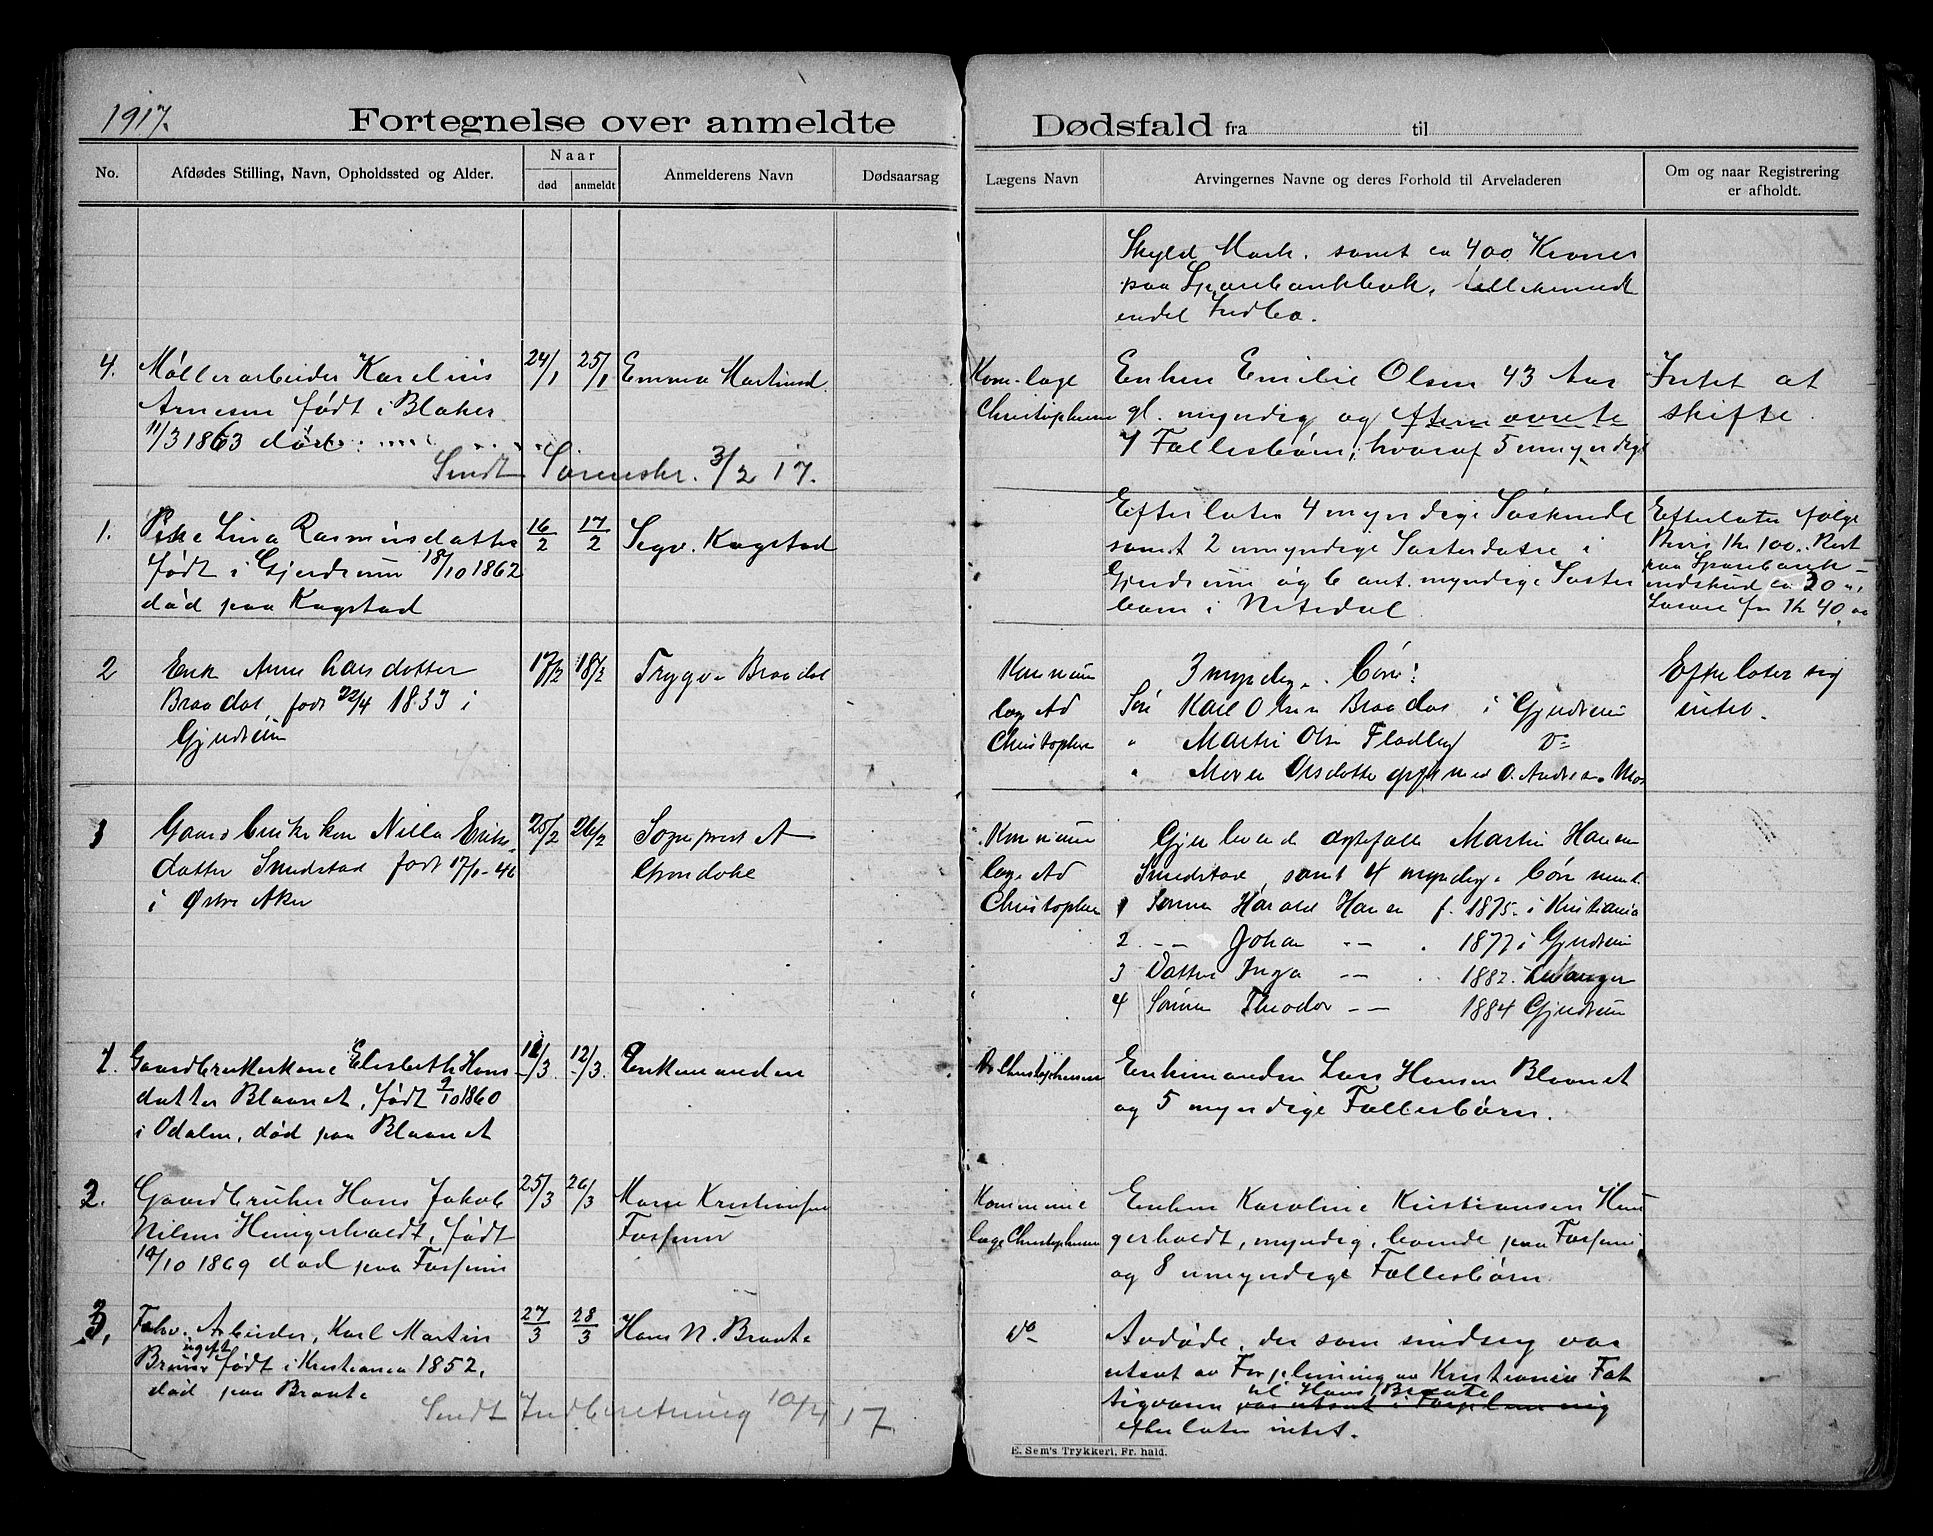 1917.
Fortegnelse over anmeldte
Dødsfald fra til
No.
Afdødes Stilling, Navn, Opholdssted og Alder.
Naar
død
anmeldt
Anmelderens Navn
Dødsaarsag
Lægens Navn
Arvingernes Navne og deres Forhold til Arveladeren
Om og naar Registrering
er afholdt.
Skyld Mark. samt ca 400 Kroner
paa Sparebankbok,
endel Indbo.
4.
Møllerarbeider Karelius
Arnesen født i Blaker
11/3 1863
24/1
25/1
Emma Martinsd
Kom. læge
Christophersen
Enken Emilie Olsen 43 Aar
gl. myndig og
7 Fællesbørn, hvoraf 5 umyndige
Intet at
skifte
Sendt Sorenskr. 3/2 17.
1.
Pike Lina Rasmusdatter
født i Gjerdrum 18/10 1862
død paa Kogstad
16/2
17/2
Segv. Kogstad
Efterlater 4 myndige Søskende
samt 2 umyndige Søsterdøtre i
Gjerdrum og 6 ant. myndige Søster
barn i Nitedal.
Efterlater følge
Bevis Kr 100.. Rest
paa Sparebank
indskud ca 30 „,
Løsøre for Kr 40,00
2
Enk Anne Larsdatter
Braadal, født 22/4 1833 i
Gjerdrum
17/2
18/2
Trygve Braadal
Kommune
læge Ad
Christophersen
3 myndige Børn:
Søn Karl Olsen Braadal i Gjerdrum
„ Martin Olsen Fladby Do
„ Maren Olsdatter gift med O. Andersen Mo
Efterlater sig
intet.
3
Gaardbrukerkone Nilla Eriks-
datter Smedstad født 17/1-46
i Østre Aker
25/2
26/2
Sogneprest A
Grendahl
Kommune
læge Ad
Christophersen
Gjenlevende ægtefælle Martin Hansen
Smedstad, samt 4 myndige Børn nemt.
1 Sønnen Harald Hansen f. 1875 i Kristiania
2 -- Johan -- . 1877 i Gjerdrum
3 Datter Inga -- .. 1882 i
4 Sønnen Theodor -- 1884 Gjerdrum
1.
Gaardbrukerkone Elisbeth Hans
datter Blaanet, født 9/10 1860
i Odalen, død paa Blaanet
11/3
12/3
Enkemanden
Dr Christophersen
Enkemanden Lars Hansen Blaanet
og 5 myndige Fællesbørn.
2.
Gaardbruker Hans Jakob
Nilsen Hungerholdt, født
14/10 1869 død paa Fosfum
25/3
26/3
Marie Kristiansen
Fosfum
Kommune
læge Christophersen
Enken Karoline Kristiansen Hun
gerholdt, myndig, boende paa Fosfum
og 8 umyndige Fællesbørn.
3.
Forhv. Arbeider, Karl Martin
ugift
Bruun født i Kristiania 1852.
død paa Braate
27/3
28/3
Hans N. Braate
Do
Avdøde, der som sindssyg var
utsat av Forpleining av Kristiania Fat
til Hans Braate
tigvæsen var utsat i Forpleining
efterlater intet.
Sendt Indberetning 10/4 17
E. Sem's Trykkeri, Fr. hald.